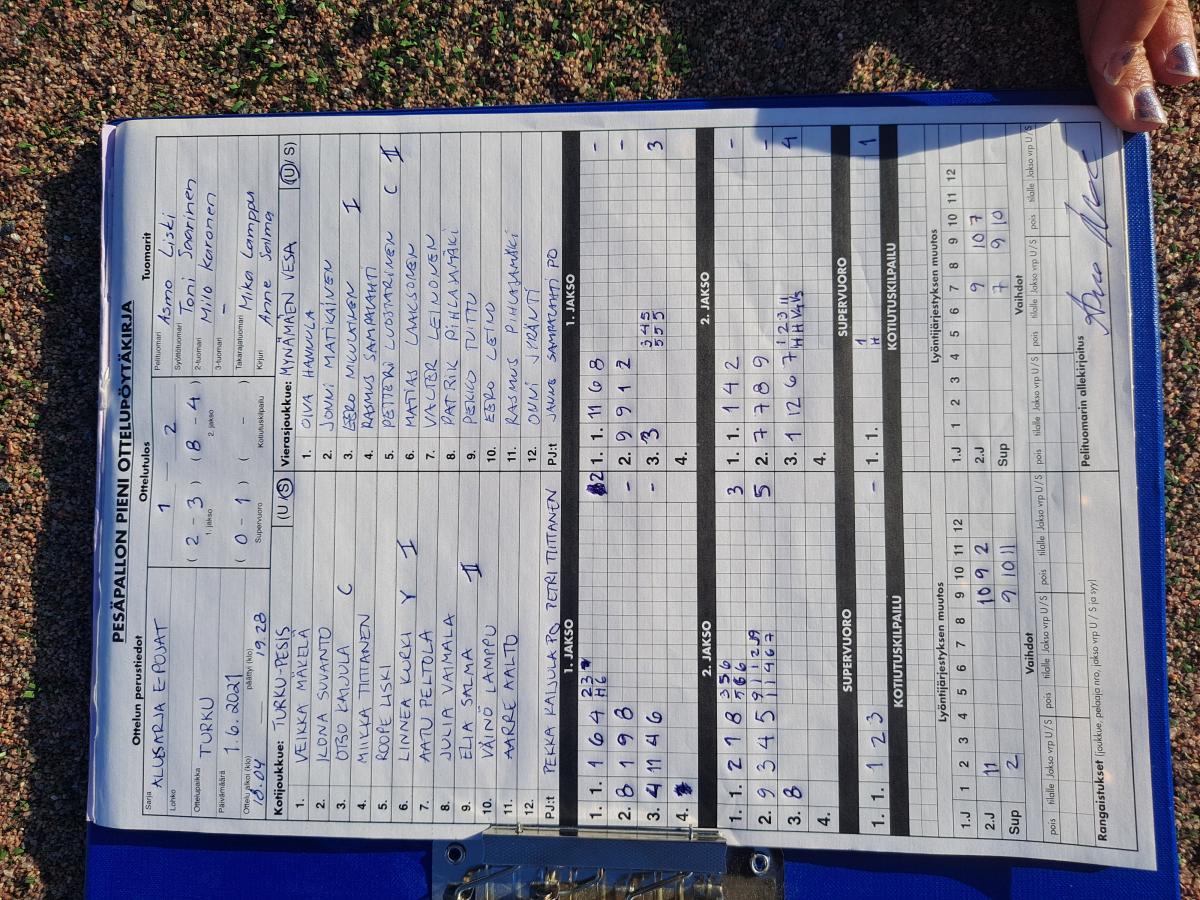 PESÄPALLON PIENI OTTELUPÖYTÄKIRJA
Ottelun perustiedot
Sarja ALUESARJA E-POJAT
Lohko
Ottelupaikka TURKU
Päivämäärä 1.6.2021
Ottelu alkoi (klo) 18.04 päättyi (klo) 19.28
Ottelutulos
1 2
( 2 - 3 ) ( 8 - 4 )
1. jakso 2. jakso
( 0 - 1 ) ( - )
Supervuoro Kotiutuskilpailu
Tuomarit
Pelituomari Asmo Liski
Syöttötuomari Toni Saarinen
2-tuomari Milo Karonen
3-tuomari -
Takarajatuomari Mika Lamppu
Kirjuri Anne Salma
Kotijoukkue: TURKU-PESIS (U/S)
1. VEIKKA MÄKELÄ
2. ILONA SUVANTO
3. OTSO KAIJULA C
4. MIIKKA TIITTANEN
5. ROOPE LISKI
6. LINNEA KUKKI Y I
7. AATU PELTOLA
8. JULIA VAIMALA
9. ELIA SALMA II
10. VÄINÖ LAMPPU
11. AARRE AALTO
12.
PJ:t PEKKA KAIJULA PQ, PETRI TIITTANEN
Vierasjoukkue: MYNÄMÄEN VESA (U/S)
1. OIVA HANNULA
2. JONNI MATIKAINEN
3. EERO MIKULAINEN I
4. RASMUS SAMPALAHTI
5. PETTERI LUOSTARINEN C I
6. MATIAS LAAKSONEN
7. VALTER LEINONEN
8. PATRIK PIHLAJAMÄKI
9. PEKKO TUITTU
10. EERO LEINO
11. RASMUS PIHLAJAMÄKI
12. ONNI JYRÄNTI
PJ:t JANNE SAMPALAHTI PQ
1. JAKSO 1. JAKSO
1. 1. 1 6 4 2 3 H 6 2 1. 1. 11 6 8 -
2. 8 1 9 8 - 2. 9 9 1 2 -
3. 4 11 4 6 - 3. 3 3 4 5 5 5 5 3
4. 4.
2. JAKSO 2. JAKSO
1. 1. 2 7 8 3 5 6 3 1. 1. 1 4 2 -
2. 9 3 4 5 5 2. 7 7 8 9 -
3. 8 3. 1 12 6 7 4
4. 4.
SUPERVUORO SUPERVUORO
1. 1. 1 2 3 - 1. 1. 1 H 1
KOTIUTUSKILPAILU KOTIUTUSKILPAILU
Lyöntijärjestyksen muutos Lyöntijärjestyksen muutos
1.J 1 2 3 4 5 6 7 8 9 10 11 12 1.J 1 2 3 4 5 6 7 8 9 10 11 12
2.J 11 10 9 2 2.J 9 10 7
Sup 2 9 10 11 Sup 7 9 10
Vaihdot Vaihdot
pois tilalle Jakso vrp U/S pois tilalle Jakso vrp U/S pois tilalle Jakso vrp U/S pois tilalle Jakso vrp U/S
Rangaistukset (joukkue, pelaaja nro, jakso vrp U / S ja syy)
Pelituomarin allekirjoitus